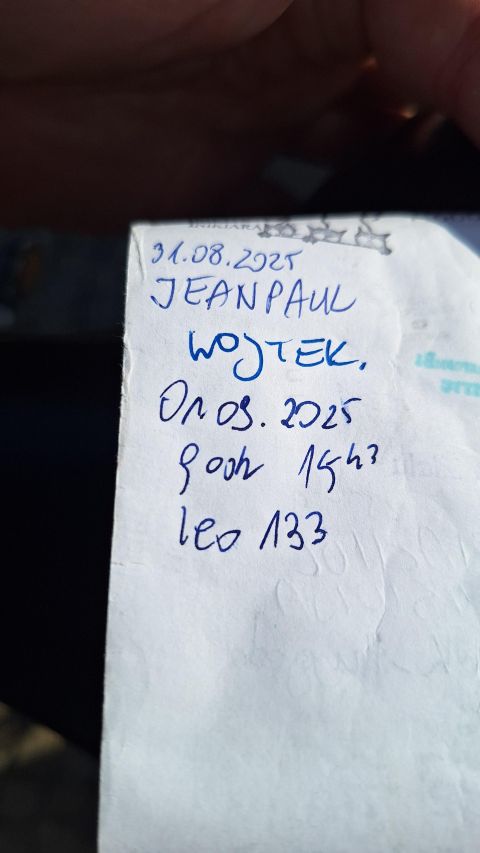 31.08.2025
JEANPAUL
WOJTEK.
01.09.2025
godz 15⁴³
leo 133